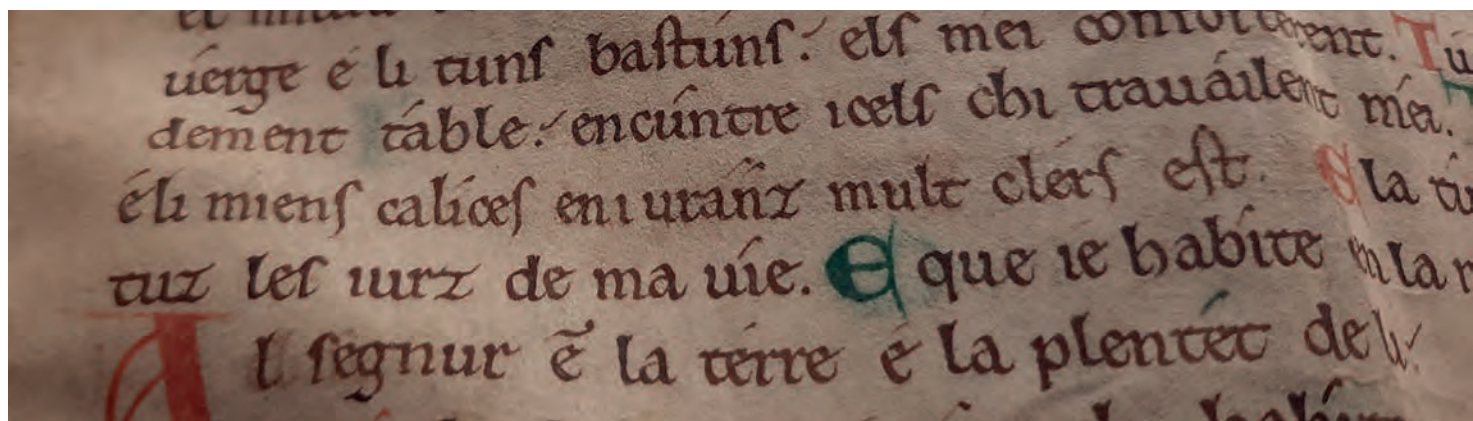 uérge é li tuns bastúns. els mei confortérent. Tú
dement táble. encúntre icels chi trauáilent méi.
é li miens calices eniuranz mult clers est. E la tú
tuz les iurz de ma uíe. E que ie habíte en la
Al segnur ẽ la térre é la plentét de li.